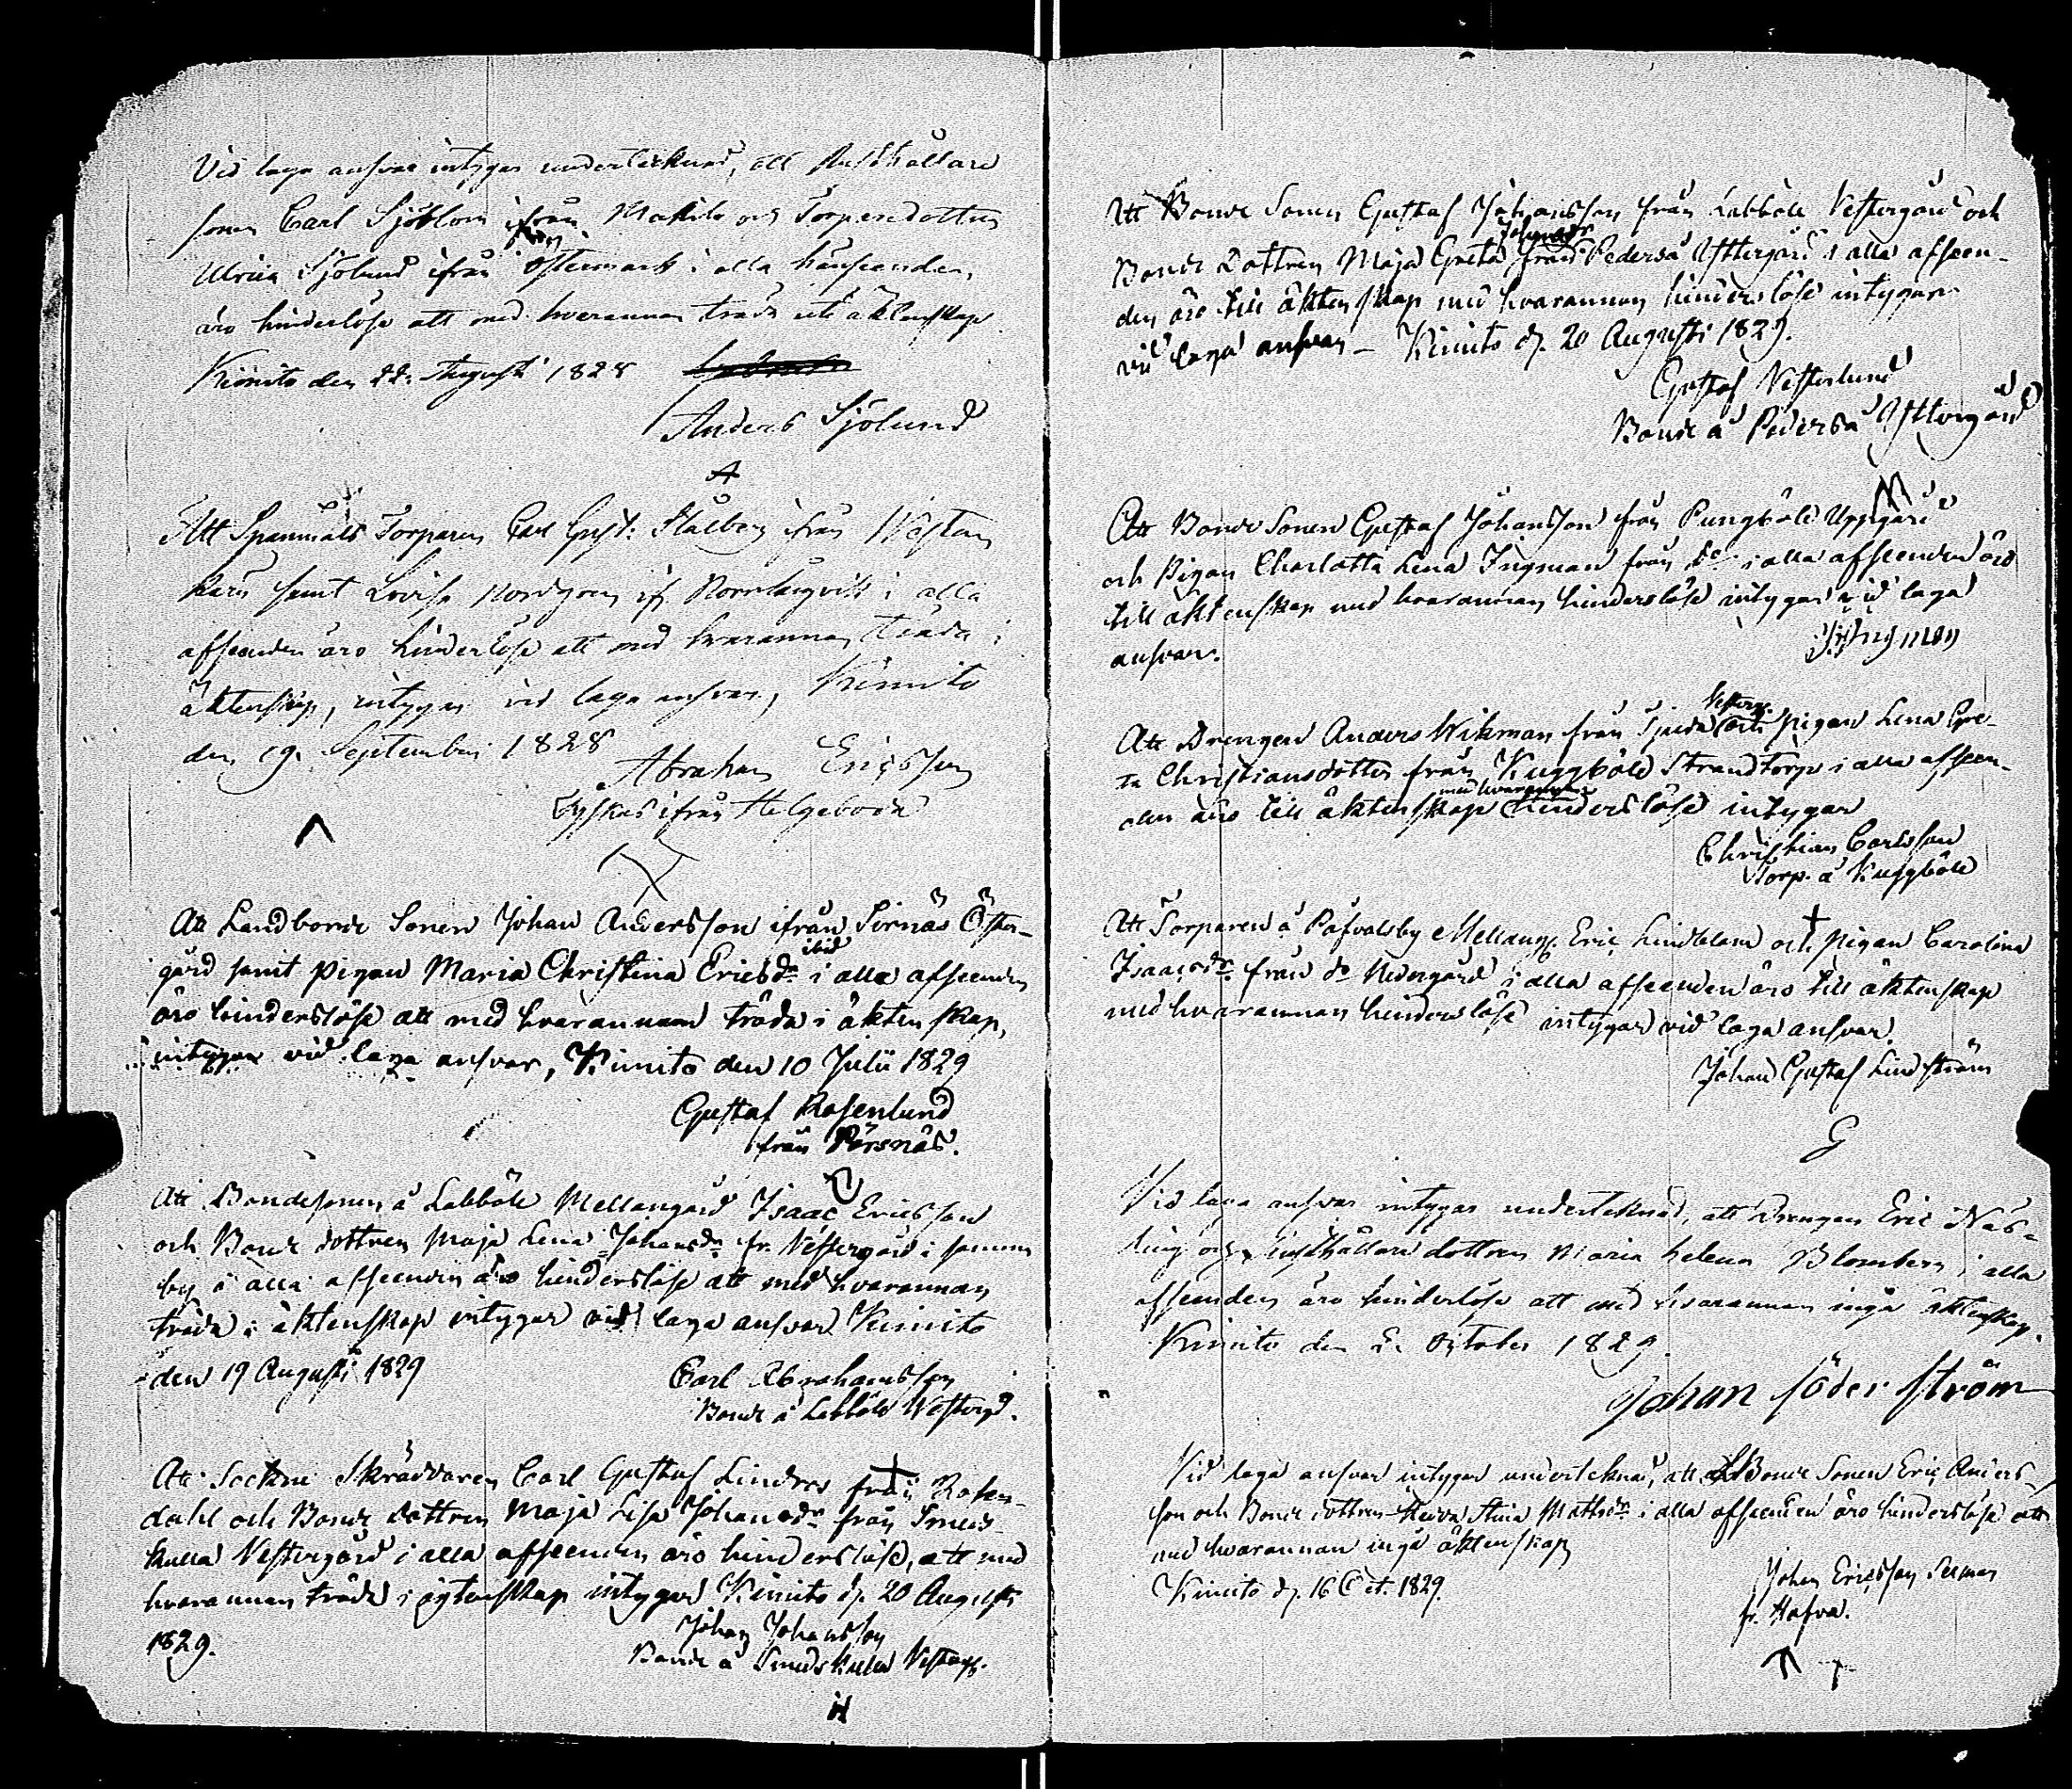 Vid laga ansvar intygar undertecknad, att Rusthållare
sonen Carl Sjöblom ifrån Makila och Torparedottren
Ulrica Sjölund ifrån Östermark i alla hänseenden
äro hinderlöse att med hvarannan träda uti äktenskap
Kimito den 22. Augusti 1828
Anders Sjölund
Att Spanmåls Torparen Carl Gust: Stålberg ifrån Westan
kärr samt Lovisa Nordgren if. Norrlångvik i alla
afseenden äro hinderlöse att med hvarannan träda i
äktenskap, intygar vid laga ansvar, Kimito
den 19. September 1828
Abraham Ericsson
Tyskas ifrån Helgeboda
Att Landbonde Sonen Johan Andersson ifrån Sirnäs Öster-
ibid
gård samt pigan Maria Christina Ericsdr i alla afseenden
äro hinderslöse att med hvarannan träda i äktenskap,
intygar vid laga ansvar, Kimito den 10 Julii 1829
Gustaf Rosenlund
från Pörsnäs.
Att Bondesonen å Labböle Mellangård Isaac Ericsson
och Bonde dottren Maja Lena Johansdr fr. Vestergård i samma
by i alla afseenden äro hinderslöse att med hvarannan
träda i äktenskap intygar vid laga ansvar Kimito
den 19 Augusti 1829
Carl Abrahamsson
Bonde å Labböle Westergd.
Att Sockne Skräddaren Carl Gustaf Lindros från Rosen-
dahl och Bonde dottren Maja Lisa Johansdr från Smeds-
kulla Vestergård i alla afseenden äro hinderslöse, att med
hvarannan träda i äktenskap intygar Kimito d. 20 Augusti
1829.
Johan Johansson
Bonde å Smedskulla Vesterg.
H
Att Bonde Sonen Gustaf Johansson från Labböle Vestergård och
Johansdr
Bonde Dottren Maja Greta från Pederså Yttergård i alla afseen-
den äro till äktenskap med hvarannan hinderslöse intygar
vid laga ansvar - Kimito d. 20 Augusti 1829.
Gustaf Vesterlund
Bonde å Pederså Yttergård
Att Bonde Sonen Gustaf Johansson från Pungböle Uppgård
och Pigan Charlotta Lena Ingman från do i alla afseenden äro
till äktenskap med hvarannan hinderslöse intygar vid laga
ansvar.
Ingman
Vesterg.
Att Drengen Anders Wikman från Tjuda och pigan Lena Gre-
ta Christiansdotter från Kuggböle Strandtorp i alla afseen-
med hvarannan
den äro till äktenskap hinderslöse intygar
Christian Carlsson
Torp. å Kuggböle
Att Torparen å Påfvalsby Mellang. Eric Lindblom och pigan Carolina
Isaacsdr från do Nedergård i alla afseenden äro till äktenskap
med hvarannan hinderslöse intygar vid laga ansvar.
Johan Gustaf Lindström
G
Vid laga ansvar intygar undertecknad, att Drengen Eric Näs-
ling och Rusthållare dottren Maria Helena Blomberg i alla
afseenden äro hinderlöse att med hvarannan ingå äktenskap.
Kimito den 2. October 1829.
Johan Söderström
Vid laga ansvar intygar undertecknad, att Bonde Sonen Eric Anders-
son och Bonde dottren Hedda Stina Mattsdr i alla afseenden äro hinderslöse att
med hvarannan ingå äktenskap
Kimito d. 16 Oct. 1829.
Johan Ericsson
fr. Hafva.